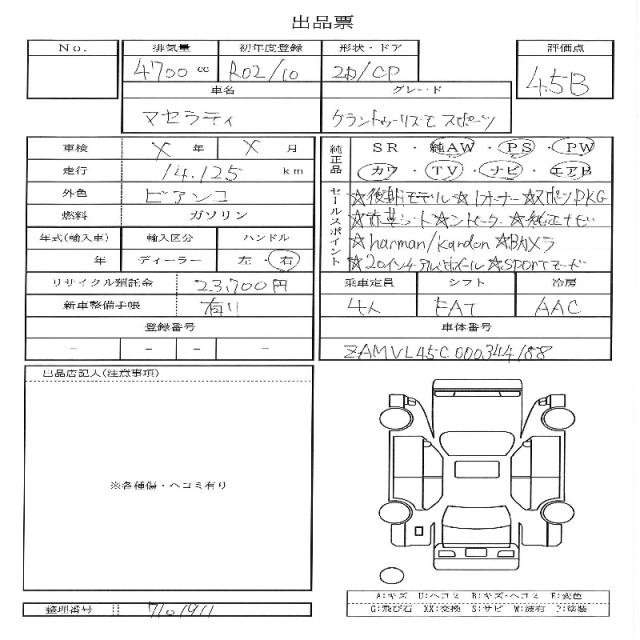 出品票
No. 排気量 初年度登録 形状・ドア 評価点
4700 cc R02/10 2D/CP 4.5B
車名 グレード
マセラティ グラントゥーリズモ スポーツ
車検 X 年 X 月
純正品 SR・純AW・PS・PW
走行 14,125 km
カワ・TV・ナビ・エアB
外色 ビアンコ
燃料 ガソリン
年式(輸入車) 輸入区分 ハンドル
年 ディーラー 左・右
セールスポイント ☆後期モデル ☆1オーナー ☆スポーツPKG
☆赤革シート☆シートヒーター ☆純正ナビ
☆harman/kardon ☆Bカメラ
☆20インチアルミホイール ☆SPORTモード
リサイクル預託金 23,700円
新車整備手帳 有り
乗車定員 シフト 冷房
4人 FAT AAC
登録番号 車体番号
- - - - ZAMVL45C000344188
出品店記入(注意事項)
※各種傷・ヘコミ有り
A:キズ U:ヘコミ B:キズ・ヘコミ E:変色
G:飛び石 XX:交換 S:サビ W:波有 P:塗装
整理番号 7101911